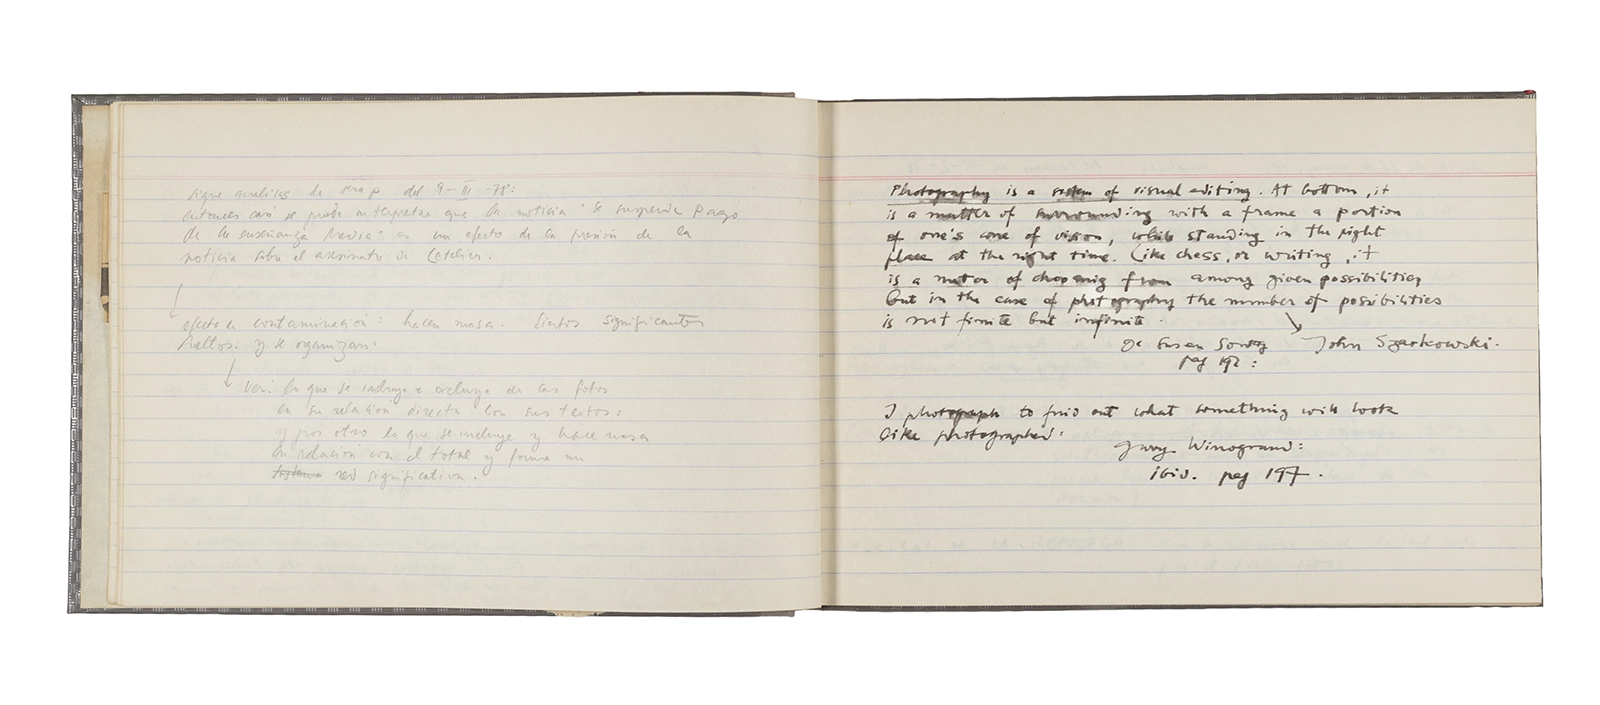 sigue analisis de del 9-III-78:
entonces casi se puede interpretar que la noticia "Se suspende Pago
de la enseñanza Media" es un efecto de la presión de la
noticia sobre el asesinato de Letelier.
efecto de contaminación: hacen masa. Ciertos significantes
sueltos: y se organizan:
ver: lo que se incluye e excluye de las fotos
en su relación directa con sus textos:
y por otro lo que se incluye y hace masa
en relación con el total y forma un
sistema red significativa.
Photography is a system of visual editing. At bottom, it
is a matter of surrounding with a frame a portion
of one's cone of vision, while standing in the right
place at the right time. Like chess, or writing, it
is a mater of choosing from among given possibilities
but in the case of photography the number of possibilities
is not finite but infinite.
John Szarkowski.
de Susan Sontag
pag 192:
I photograph to find out what something will look
like photographed:
Garry Winogrand:
ibid. pag 197.